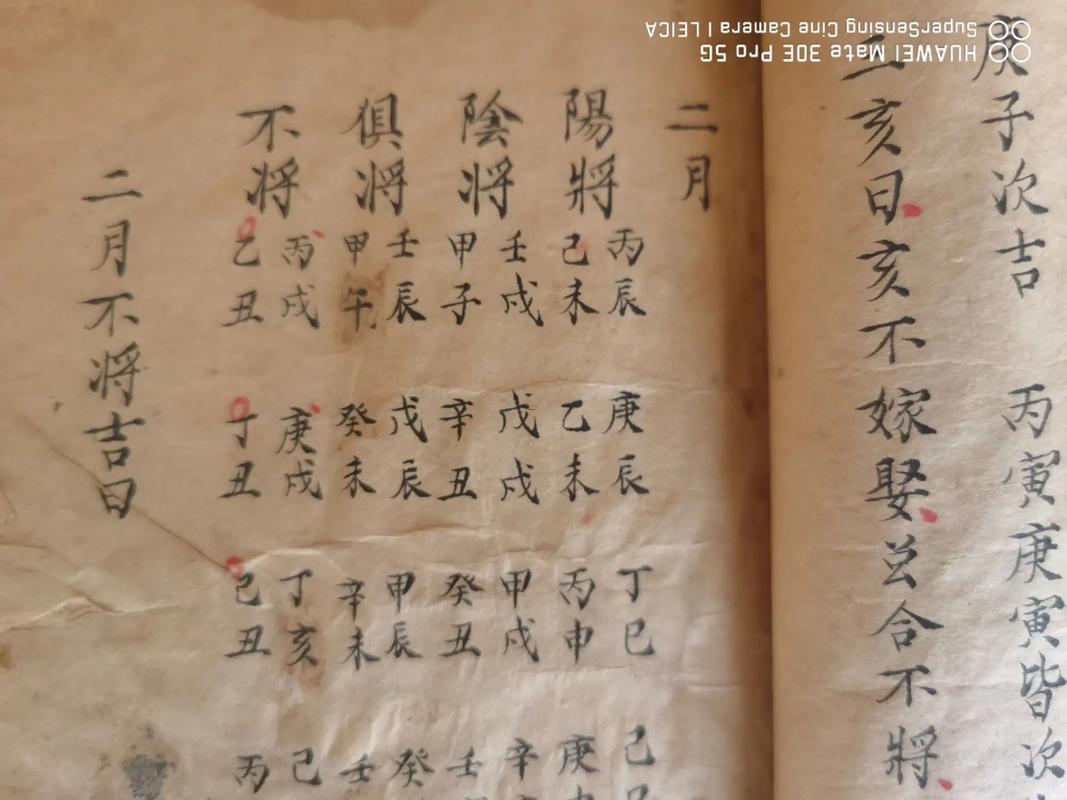 HUAWEI Mate 30E Pro 5G
SuperSensing Cine Camera | LEICA
庚子次吉 丙寅庚寅皆次
亥日亥不嫁娶 合不將
二月
陽將
丙辰 庚辰 丁巳 己
己未 乙未 丙申 庚
陰将
壬戌 戊戌 甲戌 辛
甲子 辛丑 癸丑 壬
俱将
壬辰 戊辰 甲辰 癸
甲午 癸未 辛未 壬
不将
丙戌 庚戌 丁亥 己
乙丑 丁丑 己丑 丙
二月不将吉日